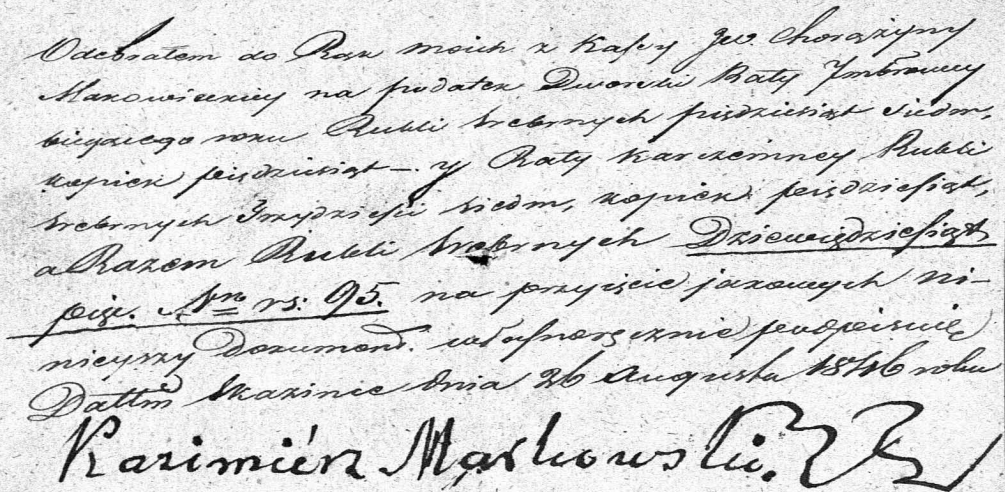 Odebrałem do Rąk moich z Kassy Jw. Chorążyny
Makowieckiey na podatek Dworski Raty
bieżącego roku Rubli srebrnych pięćdziesiąt siedm,
kopiek pięćdziesiąt – y Raty Karczemney Rubli
srebrnych Trzydzieści siedm, kopiek pięćdziesiąt,
a Razem Rubli srebrnych Dziewięćdziesiąt
pięć. Nro rs: 95. na przyięcie jakowych ni-
nieyszy Dokument. własnoręcznie podpisuię
Dattm dnia 26 Augusta 1846 roku
Kazimiérz Mąrkowski.